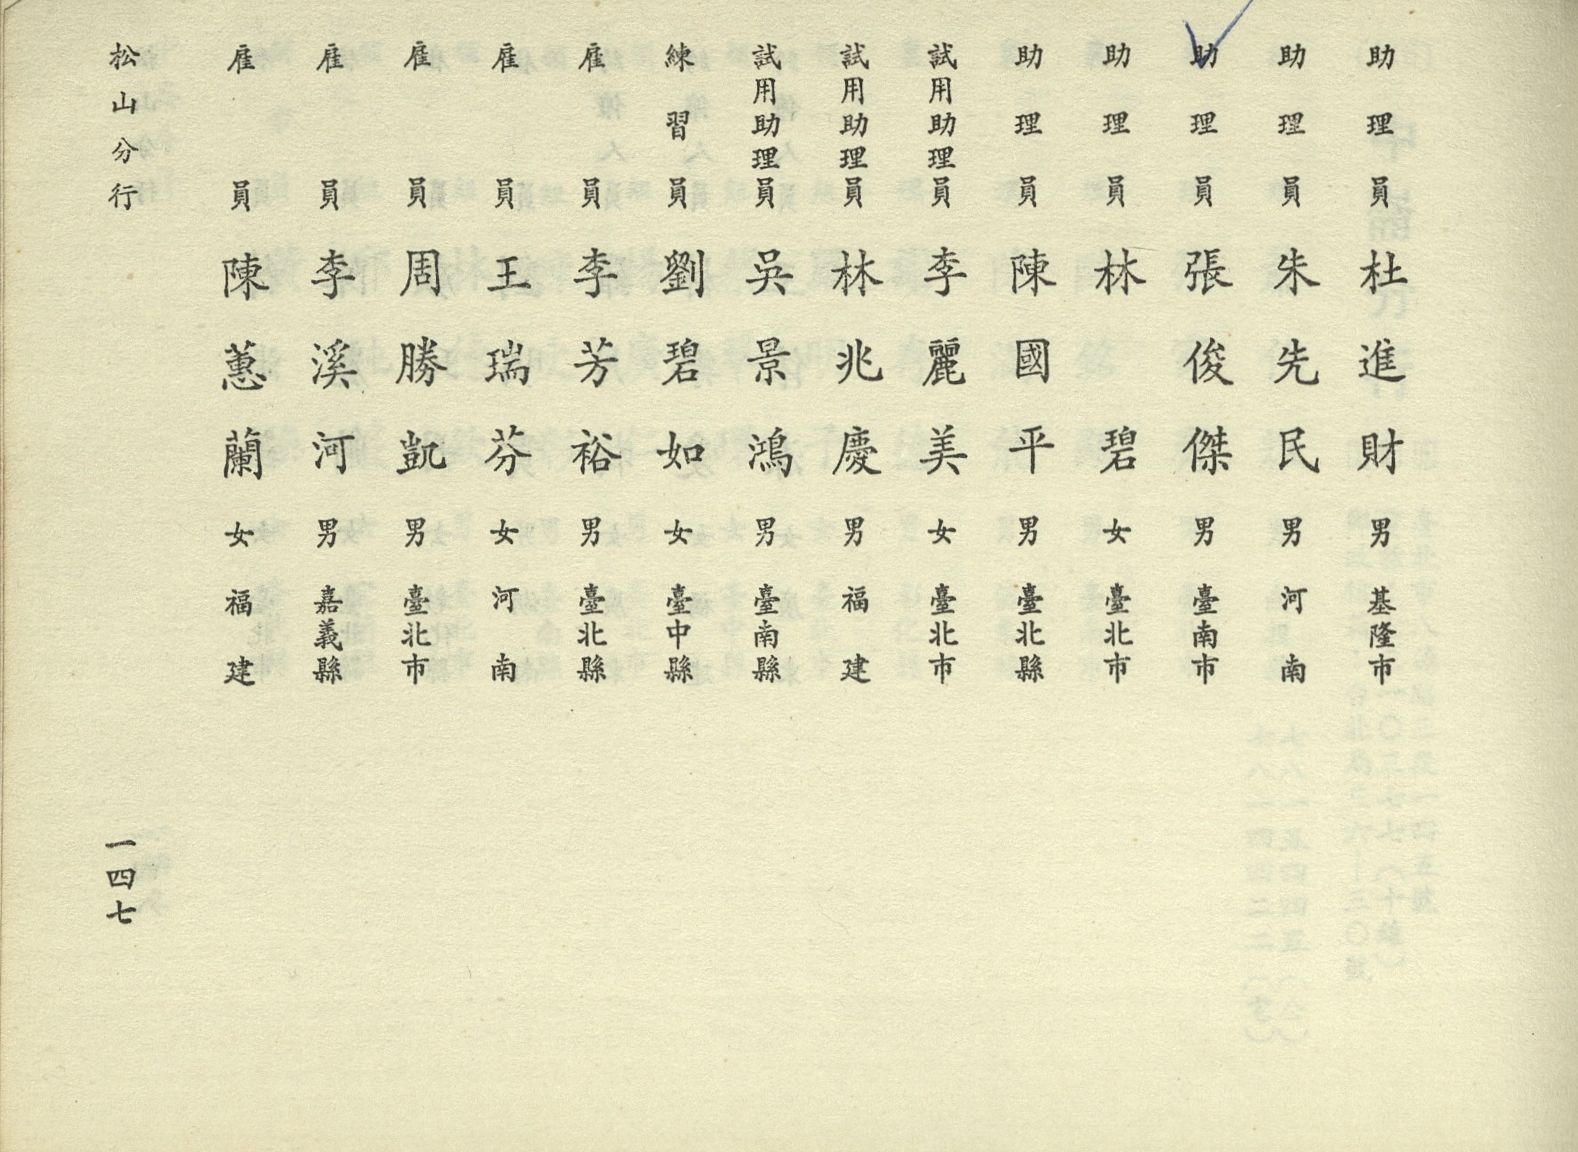 助理員 杜進財 男 基隆市
助理員 朱先民 男 河南
助理員 張俊傑 男 臺南市
助理員 林碧 女 臺北市
助理員 陳國平 男 臺北縣
試用助理員 李麗美 女 臺北市
試用助理員 林兆慶 男 福建
試用助理員 吳景鴻 男 臺南縣
練習員 劉碧如 女 臺中縣
雇員 李芳裕 男 臺北縣
雇員 王瑞芬 女 河南
雇員 周勝凱 男 臺北市
雇員 李溪河 男 嘉義縣
雇員 陳蕙蘭 女 福建
松山分行 一四七